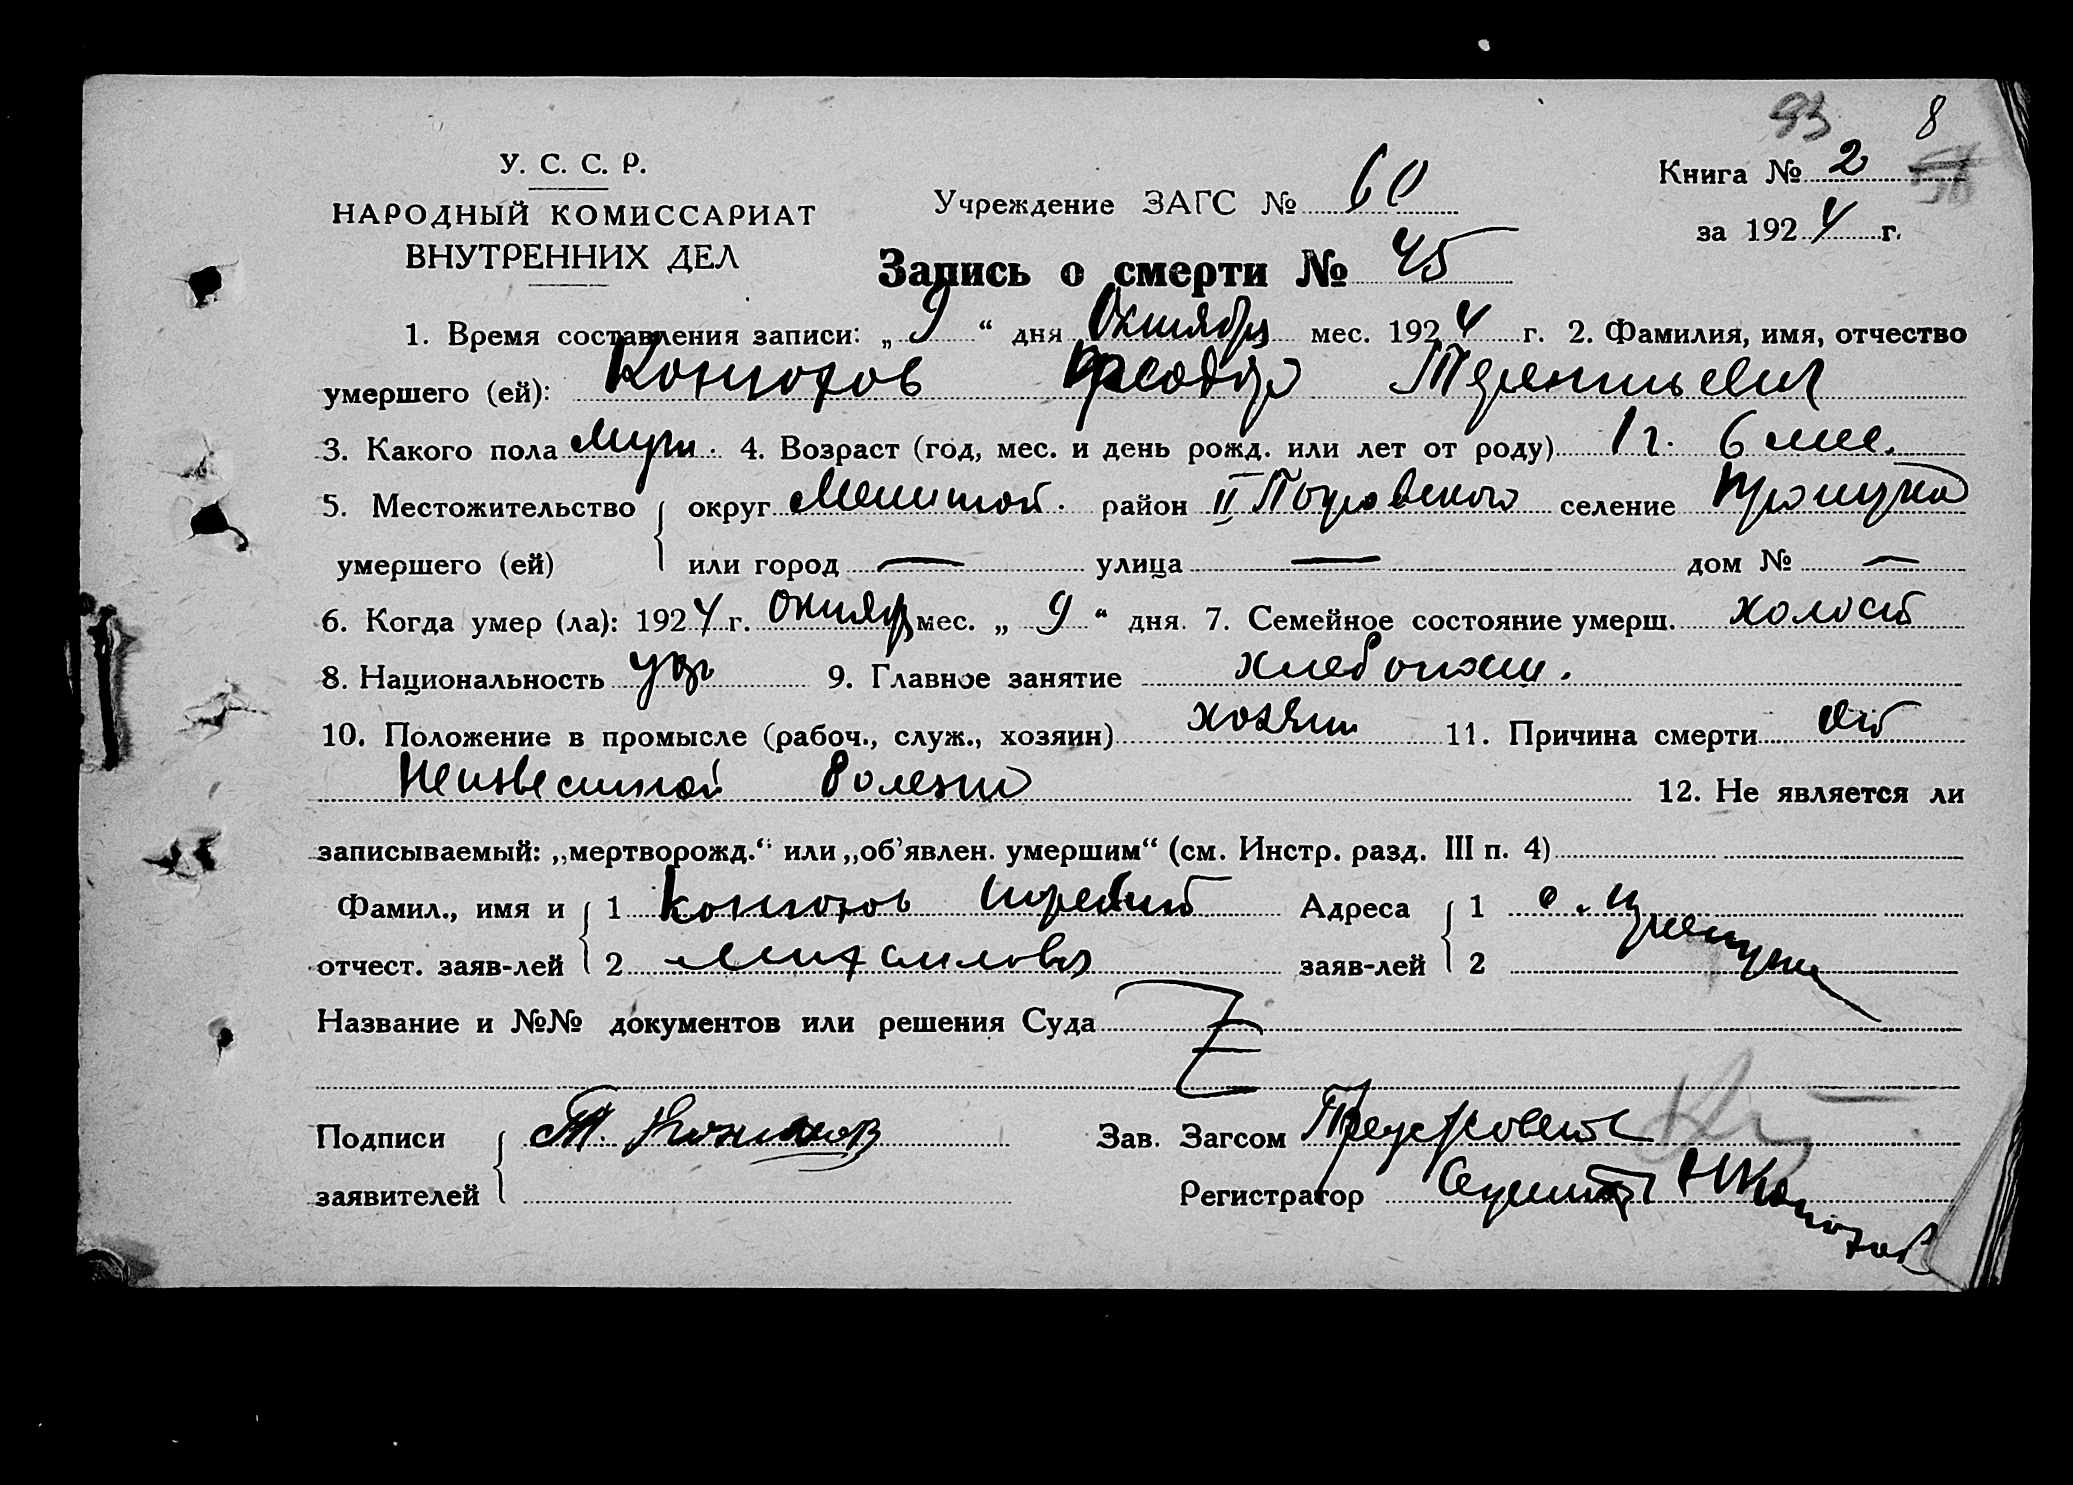 93 8
У. С. С. Р.
НАРОДНЫЙ КОМИССАРИАТ
ВНУТРЕННИХ ДЕЛ
Учреждение ЗАГС № 60
Книга № 2
за 1924 г.
Запись о смерти № 45
1. Время составления записи: „ 9 “ дня Октября мес. 1924 г. 2. Фамилия, имя, отчество
умершего (ей): Конюхов Феодор Терентьевич
3. Какого пола Муж. 4. Возраст (год, мес. и день рожд. или лет от роду) 1 г. 6 мес.
5. Местожительство округ район II Покровского селение
умершего (ей) или город — улица — дом № —
6. Когда умер (ла): 1924 г. октябр мес. „ 9 “ дня. 7. Семейное состояние умерш. холост
8. Национальность 9. Главное занятие хлебопаш.
10. Положение в промысле (рабоч., служ., хозяин) хозяин 11. Причина смерти от
Неизвестной болезни 12. Не является ли
записываемый: „мертворожд.“ или „об’явлен. умершим“ (см. Инстр. разд. III п. 4)
Фамил., имя и 1 Конюхов Терентий Адреса 1 с.
отчест. заяв-лей 2 Михайлович заяв-лей 2
Название и №№ документов или решения Суда
Подписи Т. Конюхов Зав. Загсом
заявителей Регистратор